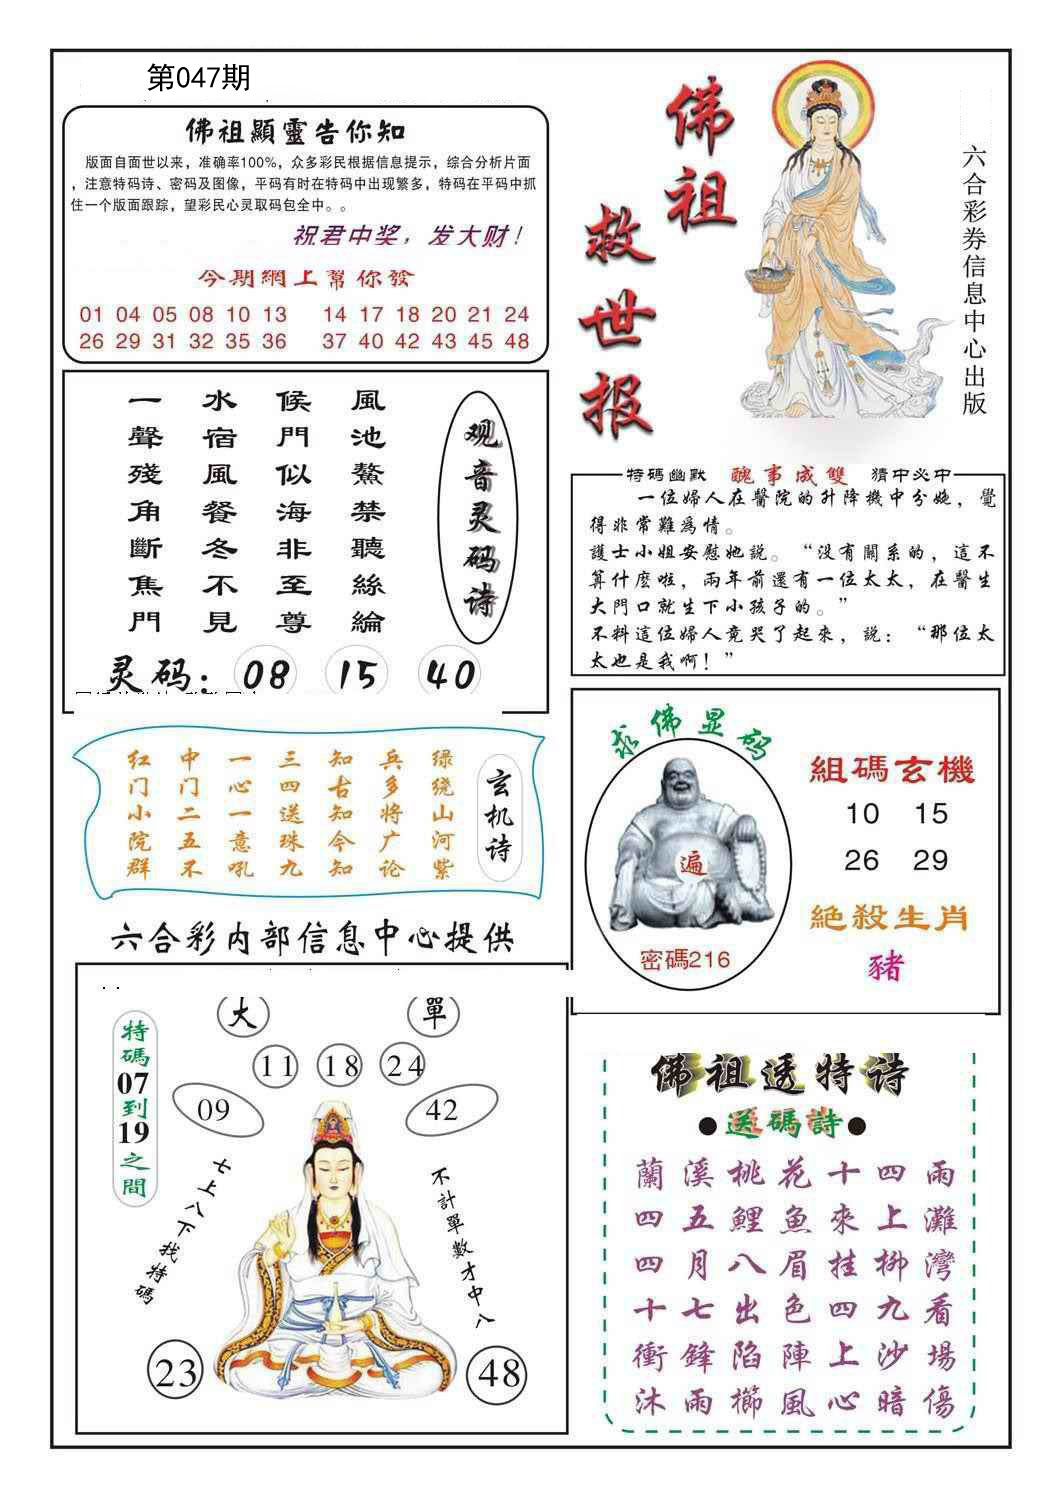 第047期
佛祖顯靈告你知
版面自面世以来，准确率100%，众多彩民根据信息提示，综合分析片面
，注意特码诗、密码及图像，平码有时在特码中出现繁多，特码在平码中抓
住一个版面跟踪，望彩民心灵取码包全中。。
祝君中奖，发大财！
今期網上幫你發
01 04 05 08 10 13 14 17 18 20 21 24
26 29 31 32 35 36 37 40 42 43 45 48
佛祖
救世报
六合彩券信息中心出版
观音灵码诗
風池鰲禁聽絲綸
候門似海非至尊
水宿風餐冬不見
一聲殘角斷焦門
灵码：08 15 40
特碼幽默 醜事成雙 猜中必中
一位婦人在醫院的升降機中分娩，覺
得非常難為情。
護士小姐安慰她說。“没有關系的，這不
算什麽啦，兩年前還有一位太太，在醫生
大門口就生下小孩子的。”
不料這位婦人竟哭了起來，説：“那位太
太也是我啊！”
玄机诗
绿绕山河紫
兵多将广论
知古知今知
三四送珠九
一心一意吼
中门二五不
红门小院群
求佛显码
遍
密碼216
組碼玄機
10 15
26 29
絕殺生肖
豬
六合彩内部信息中心提供
特碼07到19之間
大 單
11 18 24
09 42
七上八下找特碼
不計單數才中八
23 48
佛祖透特诗
●送碼詩●
蘭溪桃花十四雨
四五鯉魚來上灘
四月八眉挂柳灣
十七出色四九看
衝鋒陷陣上沙場
沐雨櫛風心暗傷